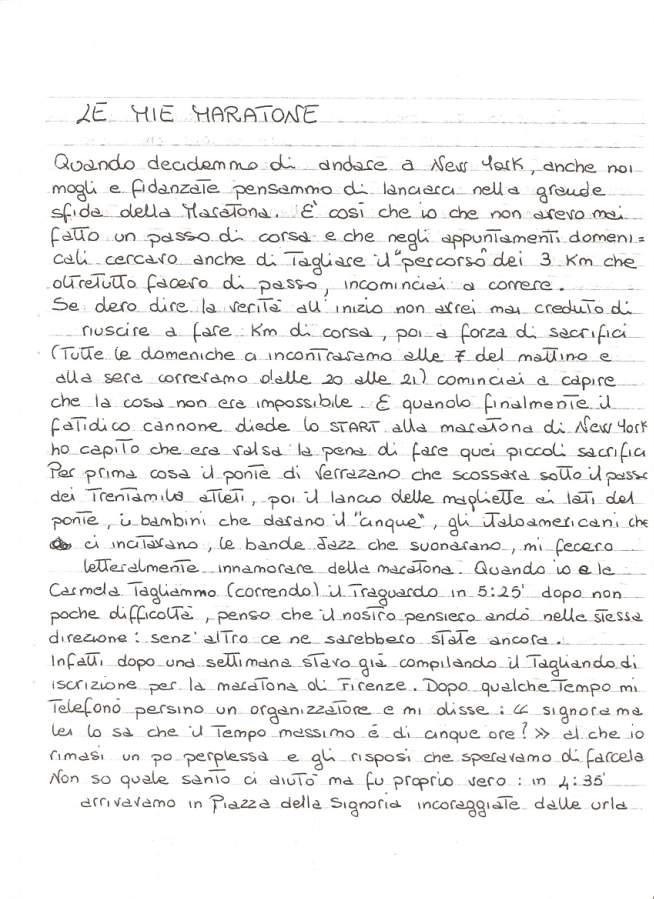 LE MIE MARATONE
Quando decidemmo di andare a New York, anche noi
mogli e fidanzate pensammo di lanciarci nella grande
sfida della Maratona. E' così che io che non avevo mai
fatto un passo di corsa e che negli appuntamenti domeni=
cali cercavo anche di tagliare il "percorso" dei 3 Km che
oltretutto facevo di passo, incominciai a correre.
Se devo dire la verità all'inizio non avrei mai creduto di
riuscire a fare Km di corsa, poi a forza di sacrifici
(tutte le domeniche ci incontravamo alle 7 del mattino e
alla sera correvamo dalle 20 alle 21) cominciai a capire
che la cosa non era impossibile. E quando finalmente il
fatidico cannone diede lo START alla maratona di New York
ho capito che era valsa la pena di fare quei piccoli sacrifici
Per prima cosa il ponte di Verrazano che scossava sotto il passo
dei trentamila atleti, poi il lancio delle magliette ai lati del
ponte, i bambini che davano il "cinque", gli italoamericani che
ci incitavano, le bande Jazz che suonavano, mi fecero
letteralmente innamorare della maratona. Quando io e la
Carmela tagliammo (correndo) il traguardo in 5:25' dopo non
poche difficoltà, penso che il nostro pensiero andò nella stessa
direzione: senz'altro ce ne sarebbero state ancora.
Infatti dopo una settimana stavo già compilando il tagliando di
iscrizione per la maratona di Firenze. Dopo qualche tempo mi
telefonò persino un organizzatore e mi disse: « signora ma
lei lo sa che il tempo massimo é di cinque ore? » al che io
rimasi un po perplessa e gli risposi che speravamo di farcela
Non so quale santo ci aiutò ma fu proprio vero: in 4:35'
arrivavamo in Piazza della Signoria incoraggiate dalle urla